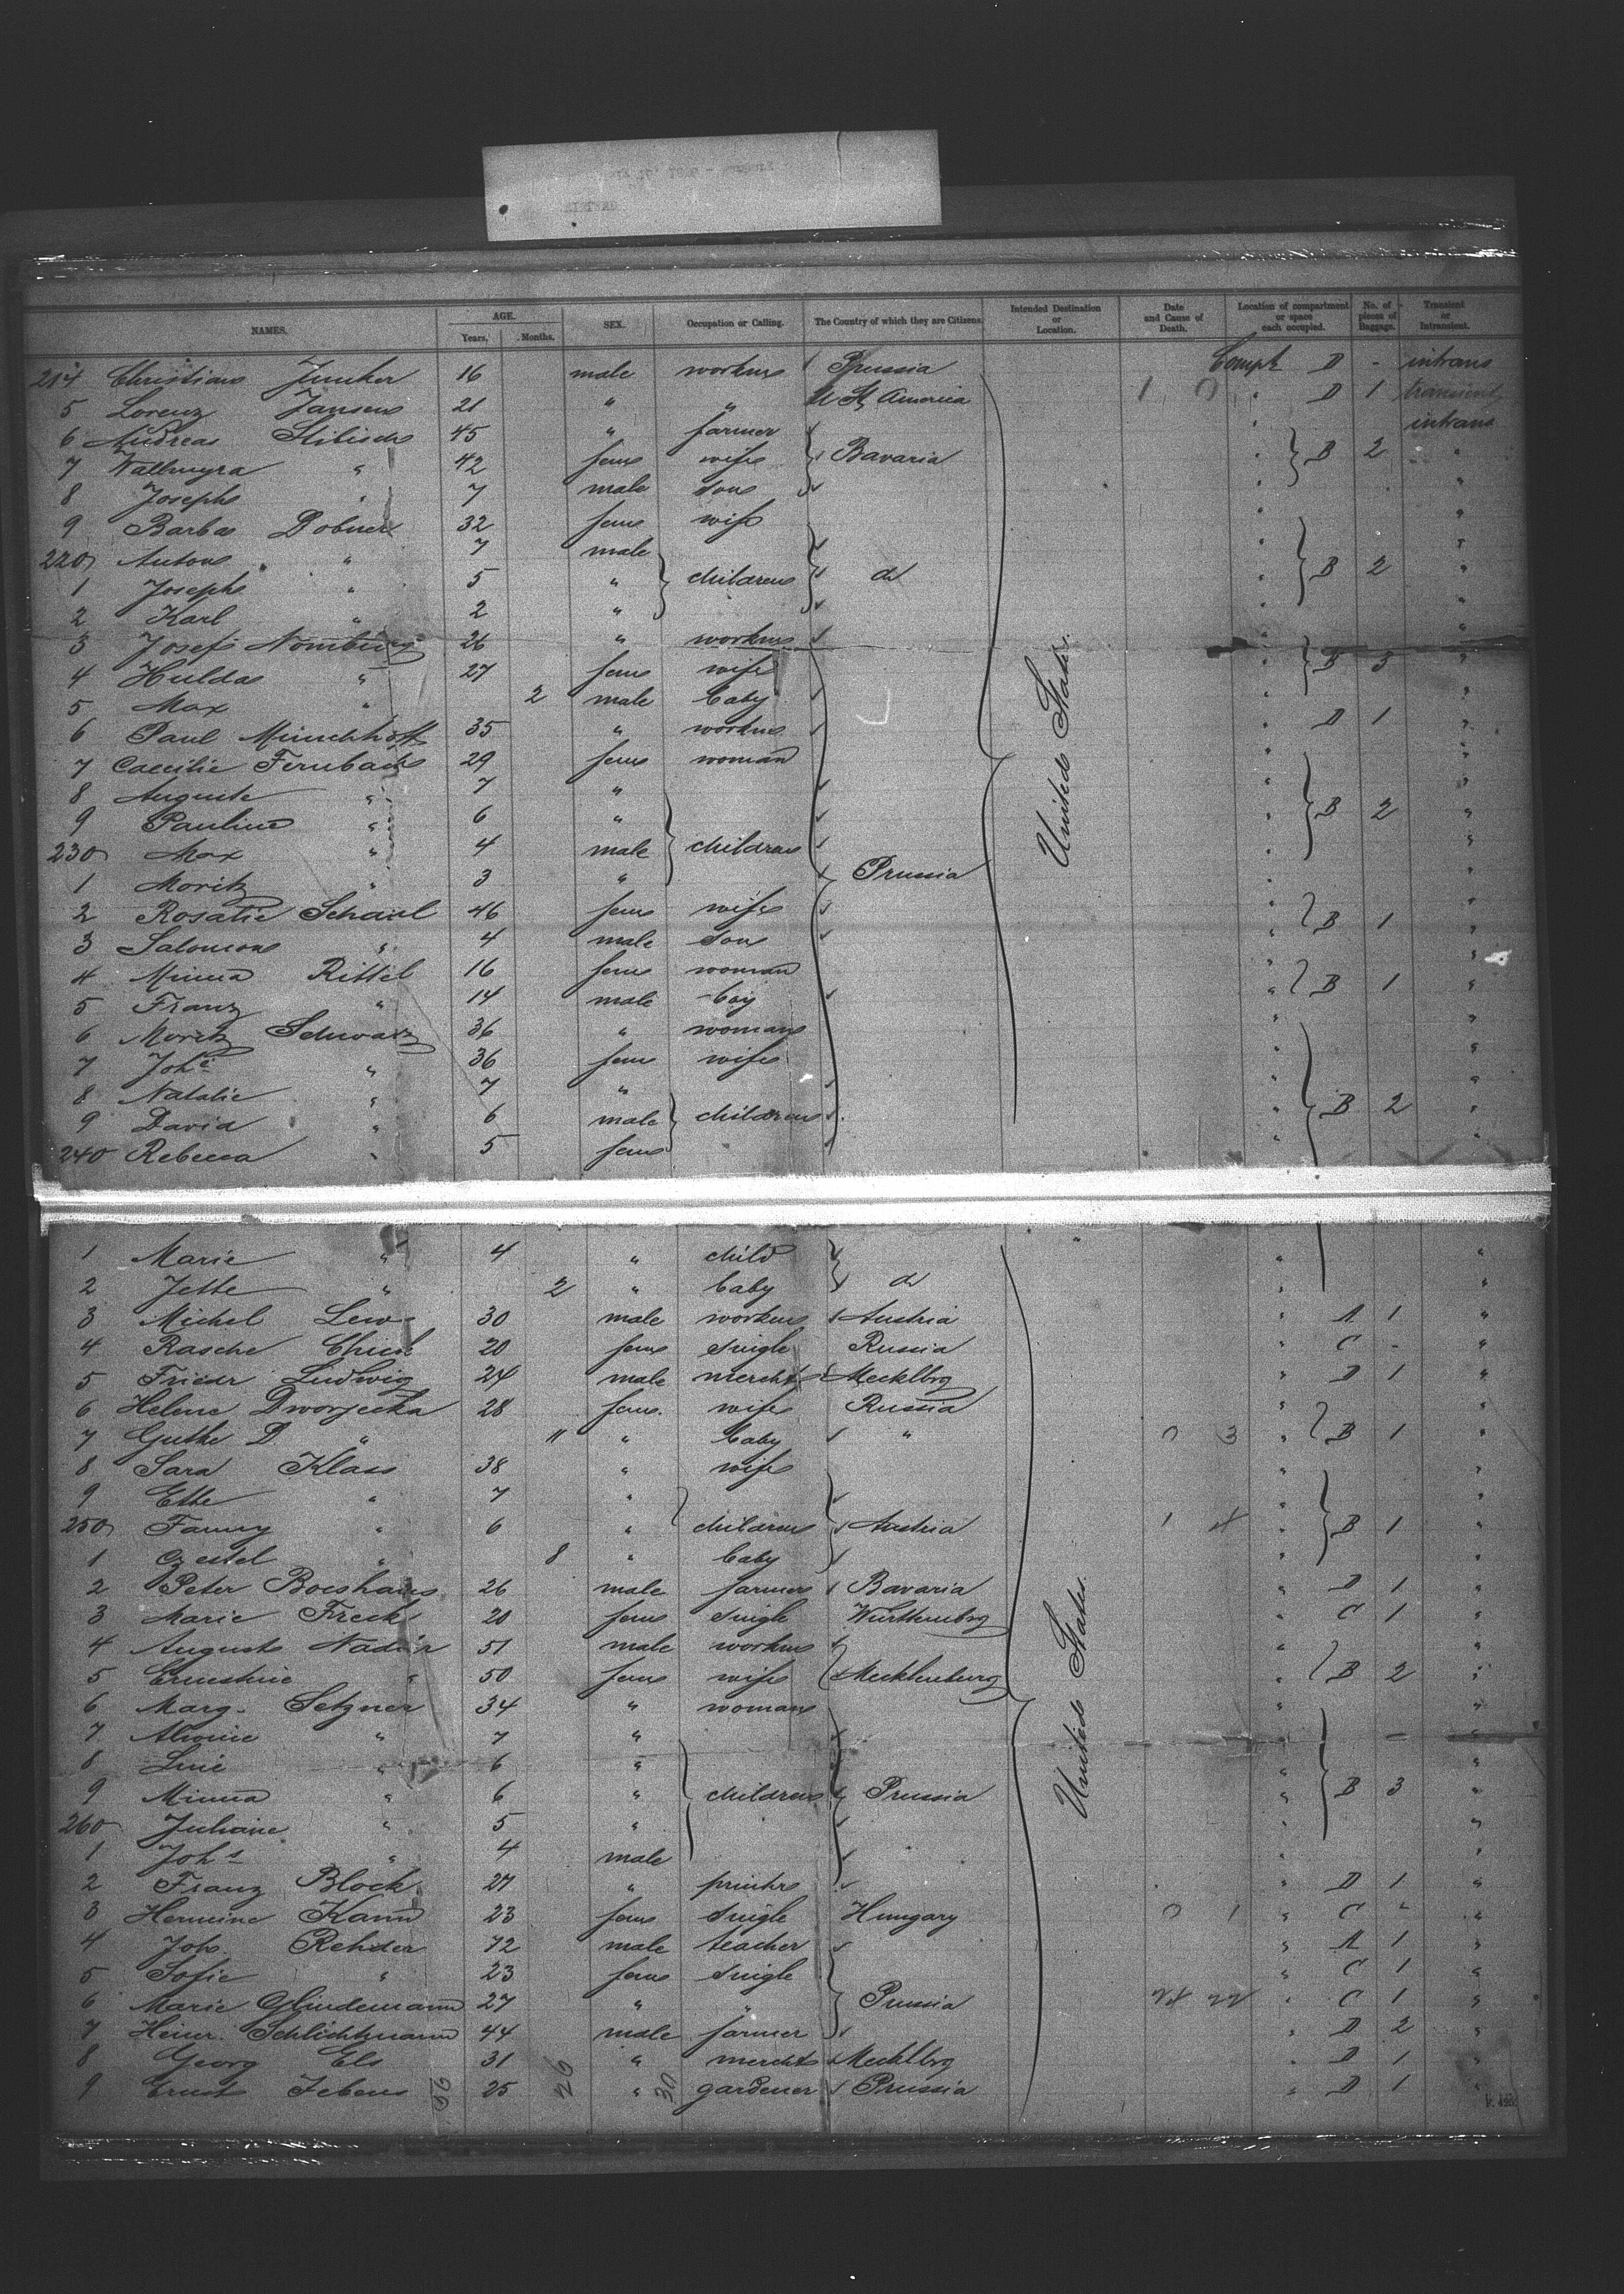 NAMES. AGE. Years. Months. SEX. Occupation or Calling. The Country of which they are Citizens. Intended Destination or Location. Date and Cause of Death. Location of compartment or space each occupied. No. of pieces of Baggage. Transient or Intransient.
214 Christian Junker 16 male workm Prussia Compt D - intrans
5 Lorenz Jansen 21 " " U St America 1 0 " D 1 transient
6 Andreas 45 " farmer " intrans
7 Wallburga " 42 fem wife Bavaria " B 2 "
8 Joseph " 7 male son " "
9 Barba Dobner 32 fem wife " "
220 Anton " 7 male " "
1 Joseph " 5 " children do " B 2 "
2 Karl " 2 " " "
3 Josef Nomburg 26 " workm " "
4 Hulda " 27 fem wife " B 3 "
5 Max " 2 male baby " "
6 Paul Münchhoff 35 " workm " D 1 "
7 Caecilie Fernbach 29 fem woman " "
8 Auguste " 7 " " "
9 Pauline " 6 " " B 2 "
230 Max " 4 male children " "
1 Moritz " 3 " Prussia "
2 Rosalie 46 fem wife " B 1 "
3 Salomon " 4 male son " "
4 Minna Rittel 16 fem woman " "
5 Franz " 14 male boy " B 1 "
6 Moritz Schwarz 36 " woman " "
7 Johe " 36 fem wife "
8 Natalie " 7 " " "
9 David " 6 male children " B 2 "
240 Rebecca " 5 fem " "
United States.
1 Marie " 4 " child " "
2 Jette " 2 " baby do " "
3 Michel Lew 30 male workm Austria " A 1 "
4 Rasche 20 fem single Russia " C - "
5 Friedr Ludwig 24 male mercht Mecklbg " D 1 "
6 Helene Dworjecka 28 fem. wife Russia " "
7 Guthe D " 11 " baby " 0 3 " B 1 "
8 Sara Klass 38 " wife " "
9 Ette " 7 " " "
250 Fanny " 6 " children Austria 1 4 " B 1 "
1 " 8 " baby " "
2 Peter Boeshans 26 male farmer Bavaria " D 1 "
3 Marie Freck 20 fem single Württembrg " C 1 "
4 August Nadler 51 male workm " "
5 Ernestine " 50 fem wife Mecklenburg " B 2 "
6 Marg. Setzner 34 " woman " "
7 Alwine " 7 " - "
8 Line " 6 " " "
9 Minna " 6 " children Prussia " B 3 "
260 Juliane " 5 " "
1 Johs " 4 male " "
2 Franz Block 27 " printer " D 1 "
3 Hermine Kann 23 fem single Hungary 0 1 " C " "
4 Joh. Rehder 72 male teacher " A 1 "
5 Sofie " 23 fem single " C 1 "
6 Marie Glindemann 27 " " Prussia 24 22 " C 1 "
7 Heinr. Schlichtmann 44 male farmer " D 2 "
8 Georg Els 31 " mercht Mecklbrg " D 1 "
9 Ernst Jebens 25 " gardener Prussia " D 1 "
United States.
56 26 30